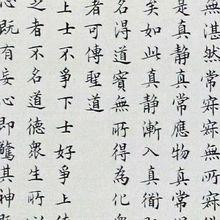 無湛然常寂寂無所寂
是真静真常應物真常
矣如此真静漸入真衜
名得道實無所得為化
者可傳聖道
上士不爭下士好爭上
之者不名道德眾生所
既有妄心即驚其神